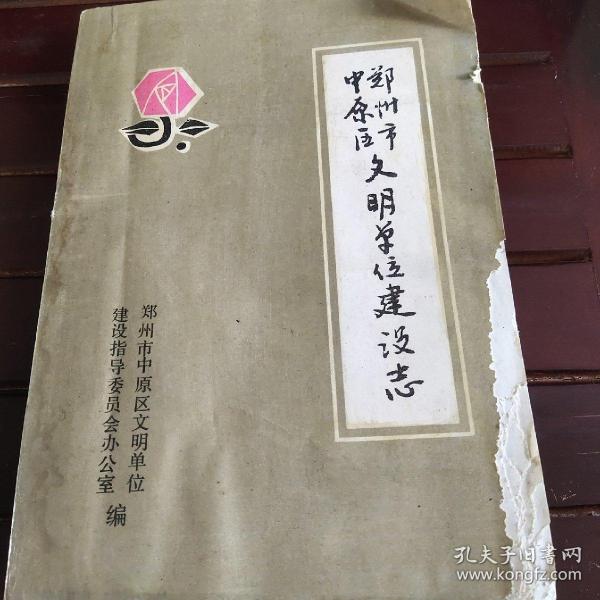 郑州市
中原区
文明单位建设志
郑州市中原区文明单位
建设指导委员会办公室 编
孔夫子旧书网
www.kongfz.com